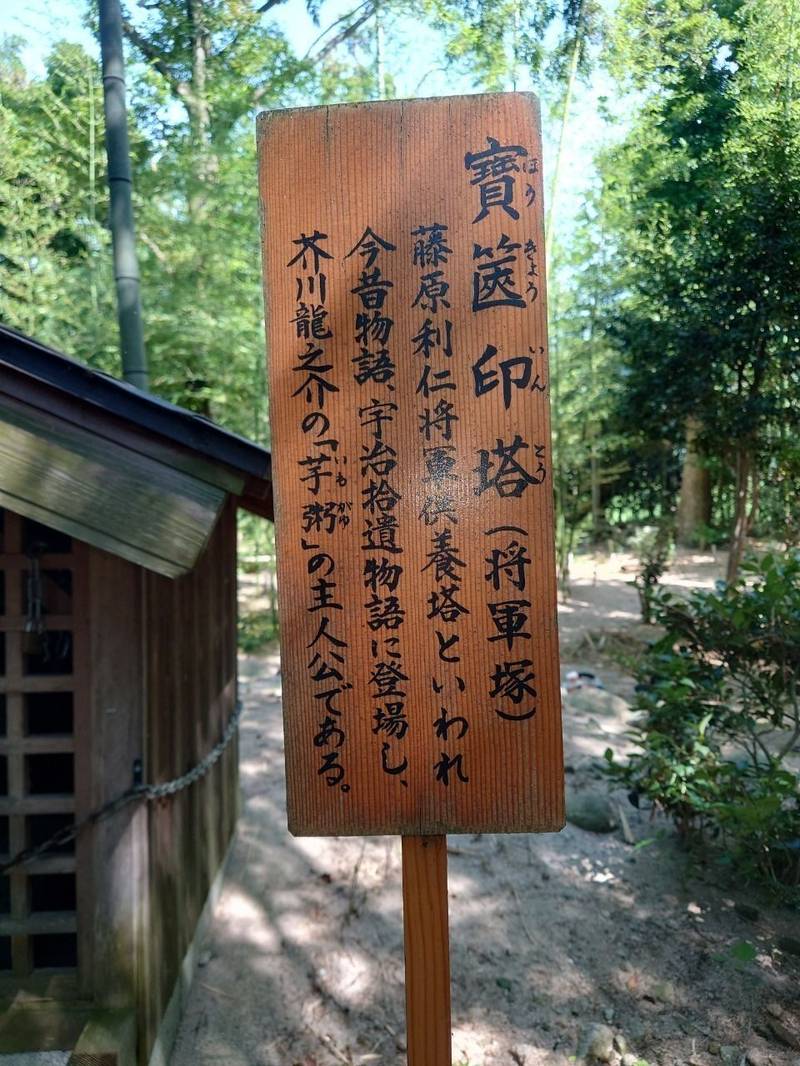 寶篋印塔(将軍塚)
ほうきょういんとう
藤原利仁将軍供養塔といわれ
今昔物語、宇治拾遺物語に登場し、
芥川龍之介の「芋粥」の主人公である。
いもがゆ